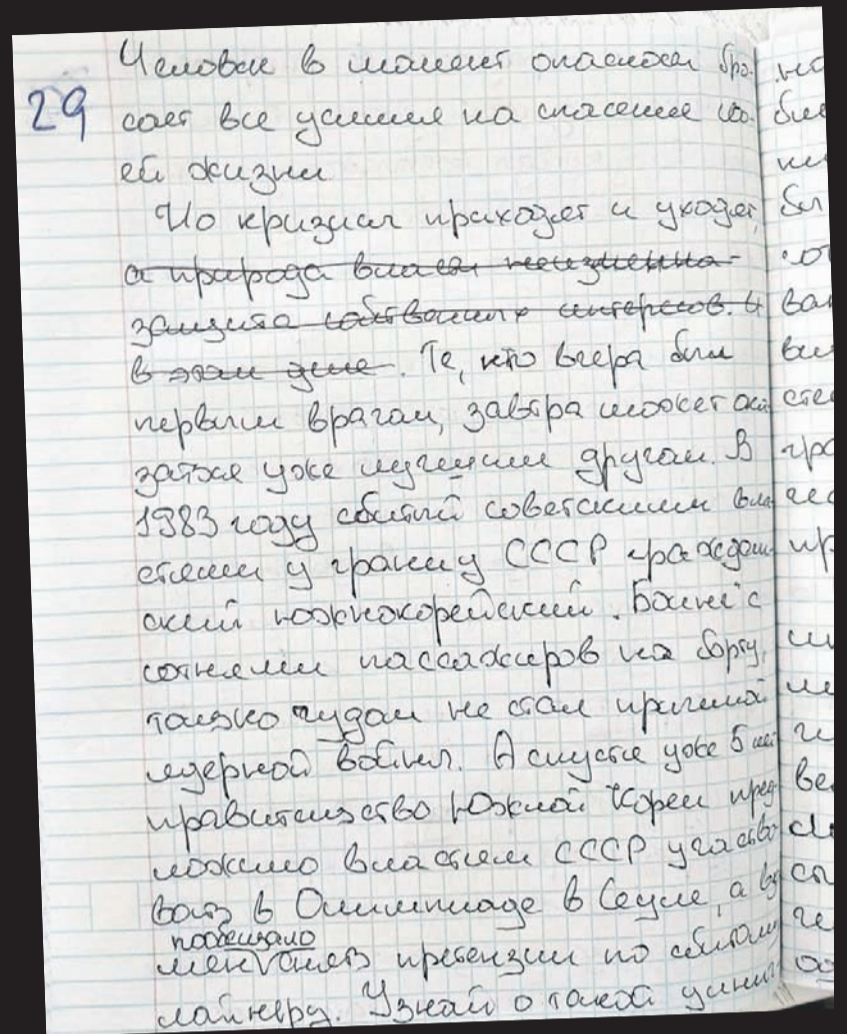 29
Человек в момент опасности бро-
сает все усилия на спасение сво-
ей жизни
Но кризисы приходят и уходят,
а природа власти неизменна -
защита собственных интересов. И
в этом деле. Те, кто вчера был
первым врагом, завтра может ока-
заться уже лучшим другом. В
1983 году сбитый советскими вла-
стями у границ СССР граждан-
ский южнокорейский "Боинг" с
сотнями пассажиров на борту,
только чудом не стал причиной
ядерной войны. А спустя уже 5 лет
правительство Южной Кореи пред-
ложило властям СССР участво-
вать в Олимпиаде в Сеуле, а вз
пообещало
претензии по сбитому
лайнеру. Узнай о такой